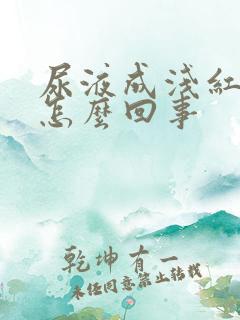 尿液成浅紅
怎麼回事
乾坤有一
未经同意禁止转载